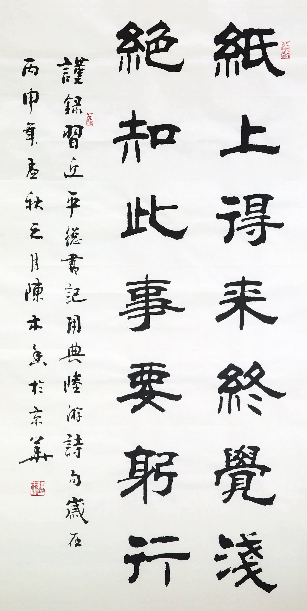 紙上得来終覺淺
絶知此事要躬行
謹録習近平總書記用典陸游詩句歲在
丙申年孟秋之月陳木於京華